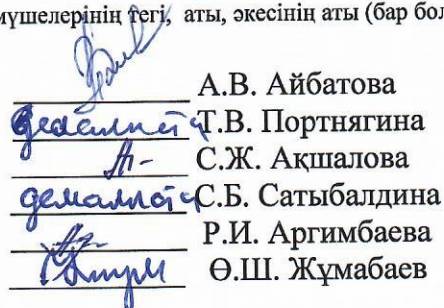 мүшелерінің тегі, аты, әкесінің аты (бар бол
А.В. Айбатова
демалыста Т.В. Портнягина
С.Ж. Ақшалова
демалыста С.Б. Сатыбалдина
Р.И. Аргимбаева
Ө.Ш. Жұмабаев